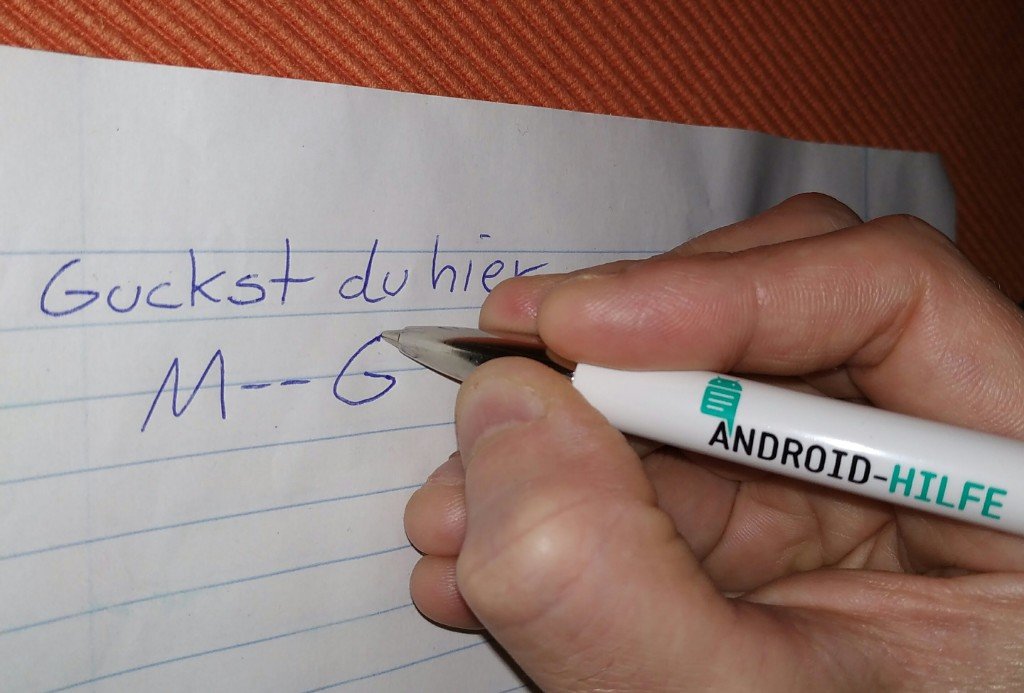 Guckst du hier
M--G
ANDROID-HILFE